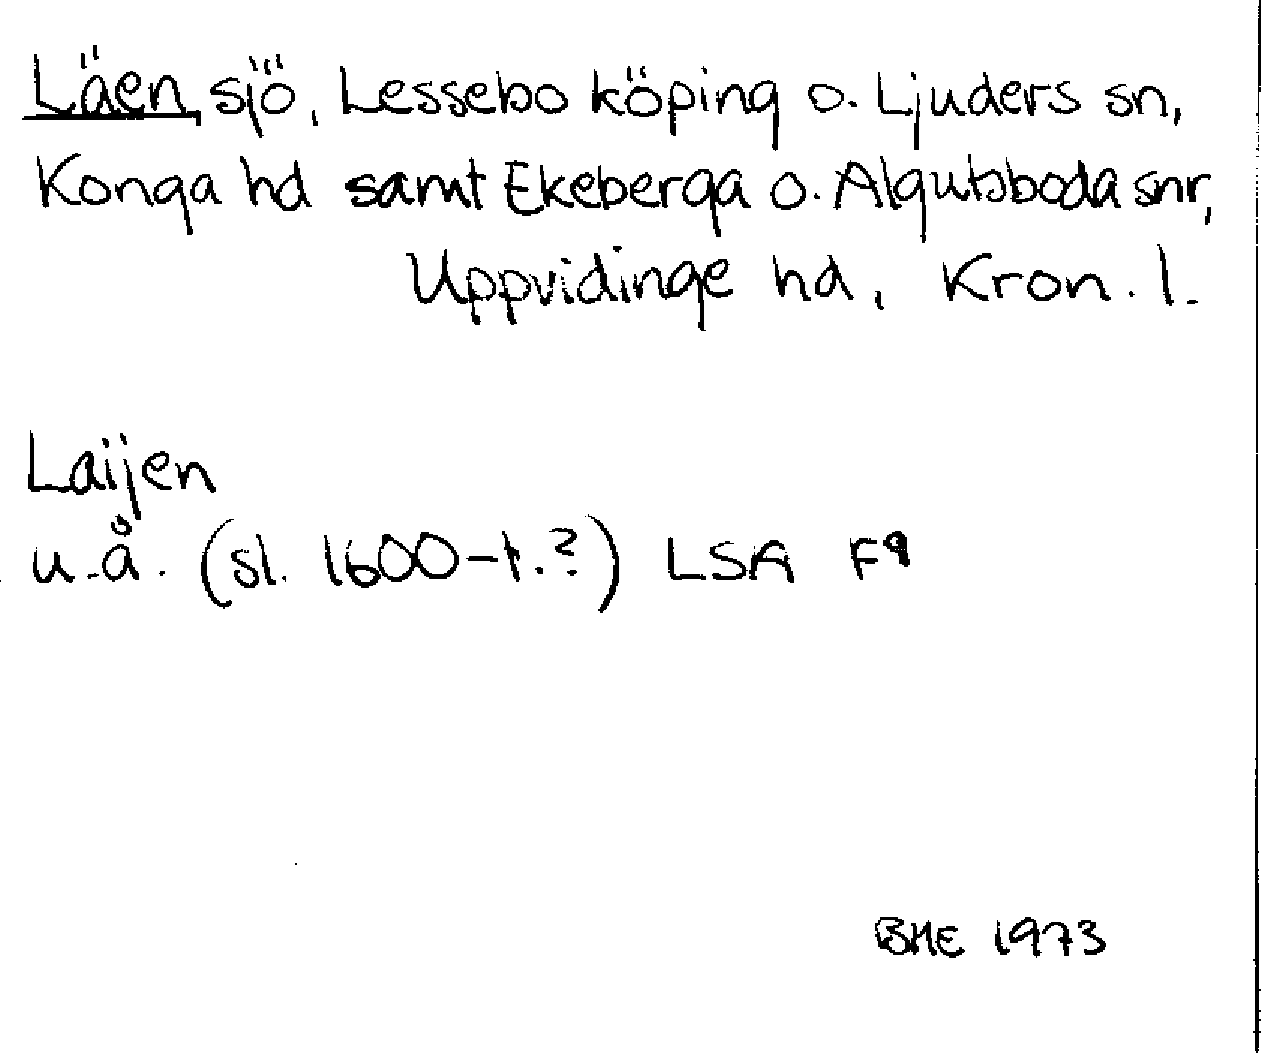 Läen sjö, Lessebo köping o. Ljuders sn,
Konga hd samt Ekeberga o. Algutsboda snr,
Uppvidinge hd, Kron. l.
Laijen
u.å. (sl. 1600-t.?) LSA F9
BME 1973